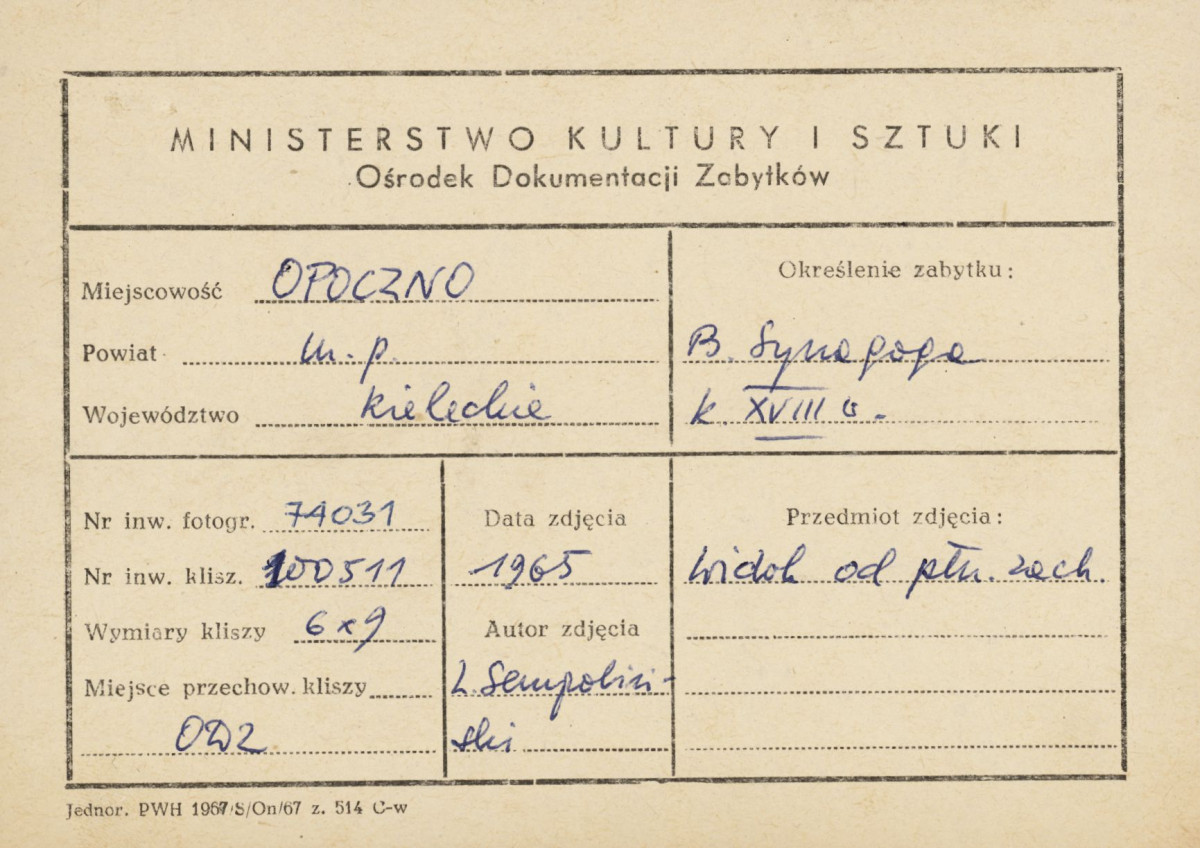 MINISTERSTWO KULTURY I SZTUKI
Ośrodek Dokumentacji Zabytków
Miejscowość OPOCZNO
Powiat m. p.
Województwo kieleckie
Określenie zabytku:
B. Synagoga
k. XVIII w.
Nr inw. fotogr. 74031
Nr inw. klisz. 100511
Wymiary kliszy 6x9
Miejsce przechow. kliszy
ODZ
Data zdjęcia
1965
Autor zdjęcia
L. Sempoliń-
ski
Przedmiot zdjęcia:
widok od płn. zach.
Jednor. PWH 1967/S/On/67 z. 514 C-w